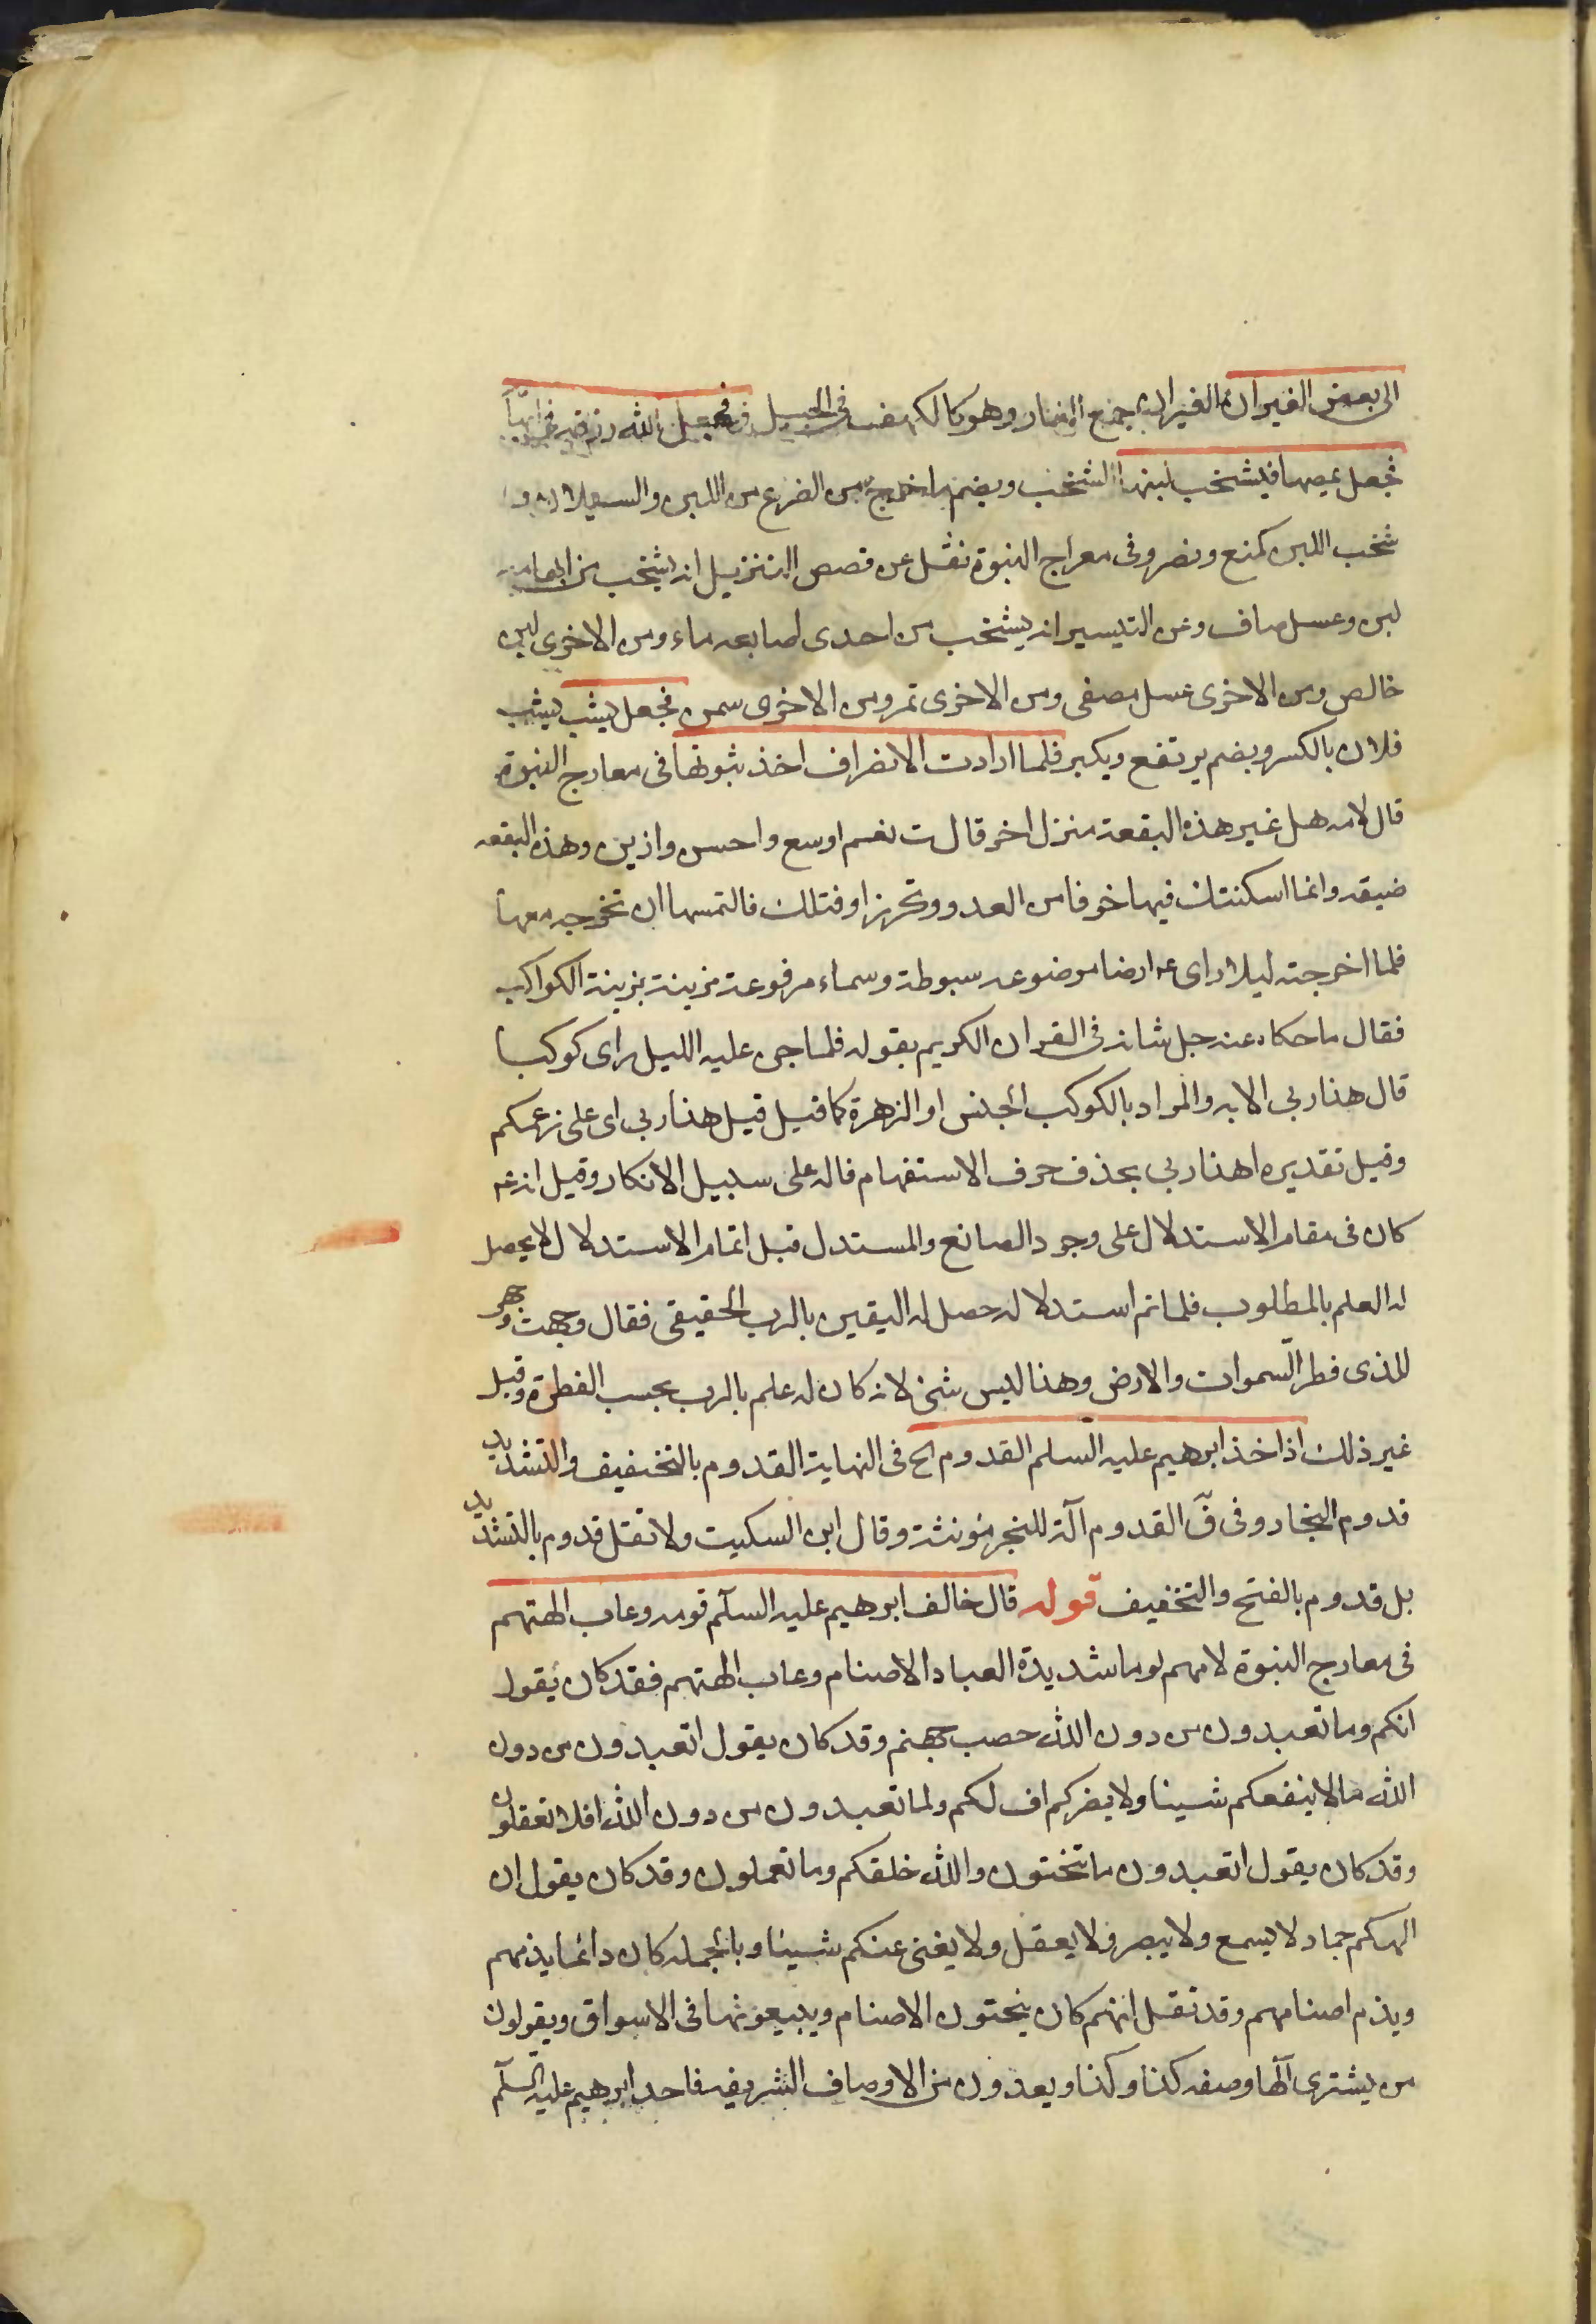 الى بعض الغيران الغيران جمع الغار وهو كالكهف فى الجبل فجعل الله رزقه فى ابهامه
فجعل يمصها فيشخب لبنها الشخب ويضم ما خرج من الضرع من اللبن والسيلان
شخب اللبن كمنع ونصر وفى معراج النبوة نقل عن قصص التنزيل انه يشخب من ابهامه
لبن وعسل صاف وعن التيسير انه يشخب من احدى اصابعه ماء ومن الاخرى لبن
خالص ومن الاخرى عسل مصفى ومن الاخرى تمر ومن الاخرى سمن فجعل يشب يشب
فلان بالكسر ويضم يرتفع ويكبر فلما ارادت الانصراف اخذ بثوبها فى معارج النبوة
قال لامه هل غير هذه البقعة منزل اخر قالت نعم اوسع واحسن وازين وهذه البقعه
ضيقه وانما اسكنتك فيها خوفا من العدو وتحرزا وقتلك فالتمسها ان تخرجه معها
فلما اخرجته ليلا راى عم ارضا موضوعه مبسوطة وسماء مرفوعة مزينة بزينة الكواكب
فقال ما حكاه عنه جل شانه فى القران الكريم بقوله فلما جن عليه الليل راى كوكبا
قال هذا ربى الايه والمراد بالكوكب الجنس او الزهرة كما قيل قيل هذا ربى اى على زعمكم
وقيل تقديره اهذا ربى بحذف حرف الاستفهام قاله على سبيل الانكار وقيل انه عم
كان فى مقام الاستدلال على وجود الصانع والمستدل قبل اتمام الاستدلال لا يحصل
له العلم بالمطلوب فلما تم استدلاله حصل له اليقين بالرب الحقيقى فقال وجهت وجهى
للذى فطر السموات والارض وهذا ليس شئ لانه كان له علم بالرب بحسب الفطرة وقيل
غير ذلك اذ اخذ ابرهيم عليه السلم القدوم الخ فى النهاية القدوم بالتخفيف والتشديد
قدوم النجار وفى ق القدوم آلة للنجر مؤنثة وقال ابن السكيت ولا تقل قدوم بالتشديد
بل قدوم بالفتح والتخفيف قوله قال خالف ابرهيم عليه السلم قومه وعاب الهتهم
فى معارج النبوة لامهم لوما شديدة العباد الاصنام وعاب الهتهم فقد كان يقول
انكم وما تعبدون من دون الله حصب جهنم وقد كان يقول اتعبدون من دون
الله ما لا ينفعكم شيئا ولا يضركم اف لكم ولما تعبدون من دون الله افلا تعقلون
وقد كان يقول اتعبدون ما تنحتون والله خلقكم وما تعملون وقد كان يقول ان
الهكم جماد لا يسمع ولا يبصر ولا يعقل ولا يغنى عنكم شيئا وبالجمله كان دائما يذمهم
ويذم اصنامهم وقد نقل انهم كان ينحتون الاصنام ويبيعونها فى الاسواق ويقولون
من يشترى الها وصفه كذا وكذا ويعدون من الاوصاف الشريفه فاحد ابرهيم عليه السلم